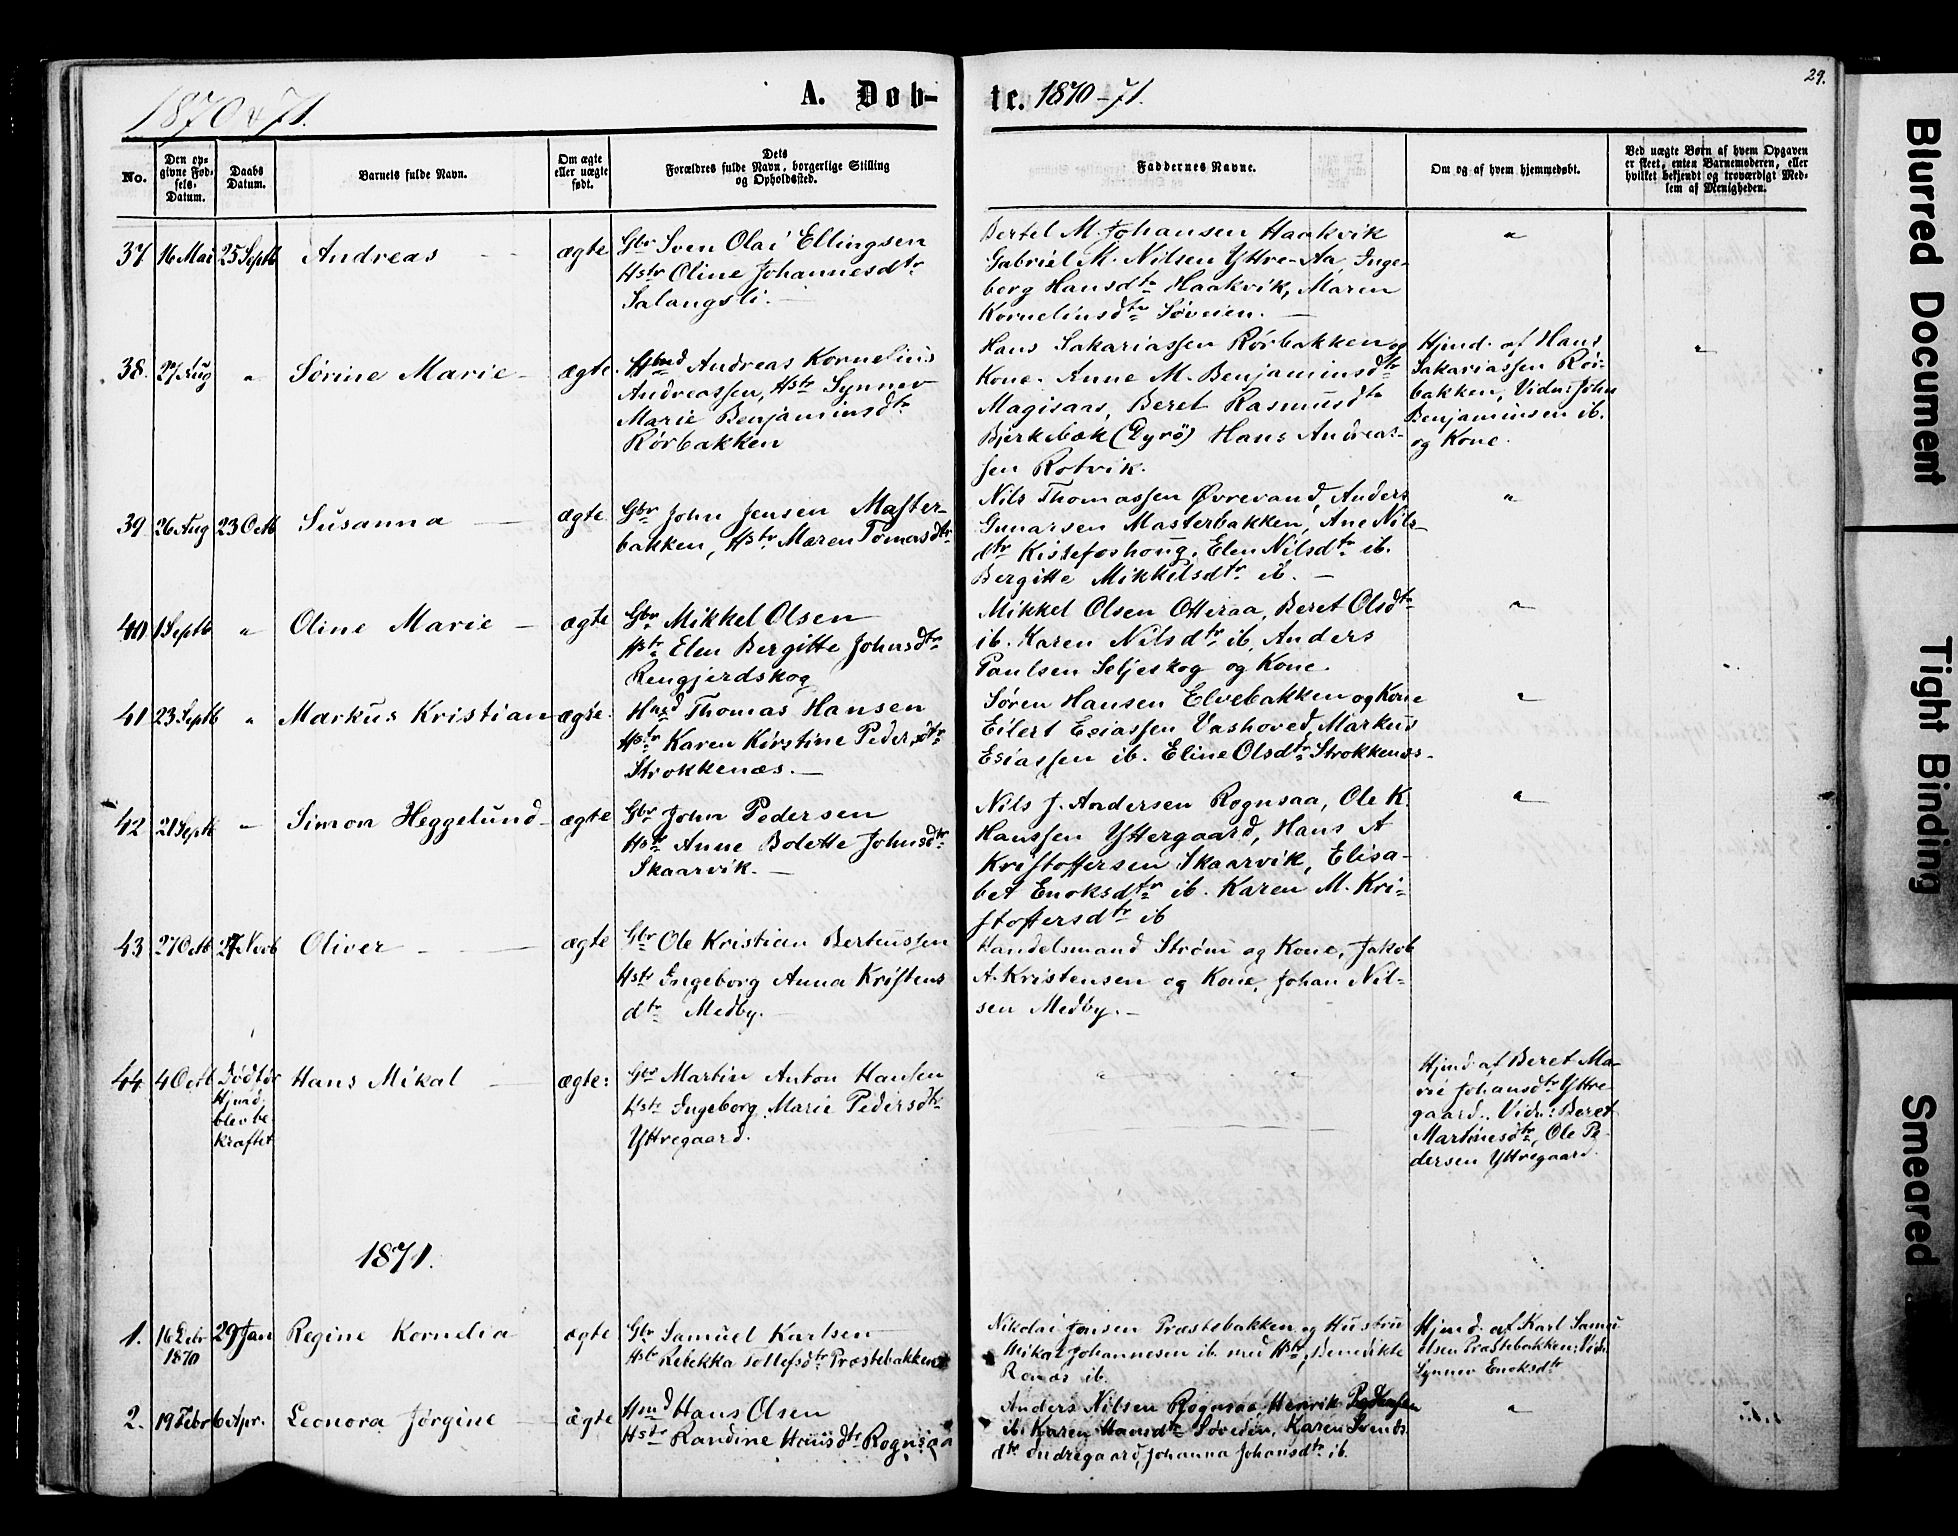 1870 & 71.
A. Døb-
te. 1870-71.
29.
No.
Den op-
givne Fød-
sels-
Datum.
Daabs
Datum.
Barnets fulde Navn.
Om ægte
eller uægte
født.
Dets
Forældres fulde Navn, borgerlige Stilling
og Opholdssted.
Faddernes Navne.
Om og af hvem hjemmedøbt.
Ved uægte Børn af hvem Opgaven
er skeet, enten Barnemoderen, eller
hvilket bekjendt og troværdigt Med-
lem af Menigheden.
37 16 Mai 25 Septb Andreas — ægte
Gbr Sven Olai Ellingsen
Hstr Oline Johannesdtr
Salangsli. —
Bertel M. Johansen Haakvik
Gabriel M. Nilsen Yttre-Aa, Inge-
borg Hansdtr Haakvik, Maren
Korneliusdtr Søveien. —
"
38. 27 Aug " Sørine Marie — ægte.
Hbmd Andreas Kornelius
Andreassen, Hstr Synnev
Marie Benjaminsdtr
Rørbakken
Hans Sakariassen Rørbakken og
Kone. Anne M. Benjaminsdtr
Magisans, Beret Rasmusdtr
Bjerkebæk (Dyrø) Hans Andreas-
sen Rotvik.
Hjmd. af Hans
Sakariassen Rør-
bakken, Vidn: John
Benjaminsen ib.
og Kone.
"
39. 26 Aug 23 Octb Susanna — ægte
Gbr John Jensen Master-
bakken, Hstr Maren Tomasdtr
Nils Thomassen Øvrevand, Anders
Gunarsen Masterbakken, Ane Nils-
dtr Kistefoshoug. Elen Nilsdtr ib.
Bergitte Mikkelsdtr ib. —
"
40 1 Septb " Oline Marie — ægte
Gbr Mikkel Olsen
Hstr Elen Bergitte Johnsdtr
Rengjerdskog
Mikkel Olsen Otteraa, Beret Olsdtr
ib. Karen Nilsdtr ib, Anders
Paulsen Seljeskog og Kone.
"
41 23 Septb " Markus Kristian ægte.
Hmd Thomas Hansen
Hstr Karen Kirstine Pedersdtr
Strokkenæs. —
Søren Hansen Elvebakken og Kone
Eilert Esiassen Vashoved, Markus
Esiassen ib. Eline Olsdtr Strokkenæs-
"
42 21 Septb " Simon Heggelund — ægte
Gbr John Pedersen
Hstr Anne Bolette Johnsdtr
Skaarvik. —
Nils J. Andersen Rognsaa, Ole K.
Hanssen Yttergaard, Hans A
Kristoffersen Skaarvik, Elisa-
bet Enoksdtr ib. Karen M. Kri-
stoffersdtr ib
"
43 27 Octb 27 Novb Oliver — ægte
Gbr Ole Kristian Berthussen
Hstr Ingeborg Anna Kristens
dtr Medby. —
Handelsmand Strøm og Kone, Jakob
A. Kristensen og Kone, Johan Nil-
sen Medby. —
44 4 Octb Død før
Hjmd.
blev be-
kræftet
Hans Mikal — ægte:
Gbr Martin Anton Hansen
Hstr Ingeborg Marie Pedersdtr
Yttregaard.
" " "
Hjmd af Beret Ma-
rie Johansdtr Yttre-
gaard. Vidn: Beret
Martinesdtr, Ole Pe-
dersen Yttregaard.
1871.
1. 16 Debr 29 Jan Regine Kornelia ægte
1870
Gbr Samuel Karlsen
Hstr Rebekka Tollefsdtr Præstebakken
Nikolai Jensen Præstebakken og Hustru
Mikal Johannesen ib. med Hstr, Benedikte
ib.
Hjmd. af Karl Samu-
elsen Præstebakken: Vidn.
Synnev Enoksdtr
2. 19 Febr 6 Apr. Leonora Jørgine — ægte
Hmd Hans Olsen
Hstr Randine Hansdtr Rognsaa
Anders Nilsen Rognsaa, Henrik Pedersen
ib. Karen Hansdtr Søveien, Karen Svends
dtr Indregaard, Johanna Johansdtr ib.
"
Blurred Document
Tight Binding
Smeared